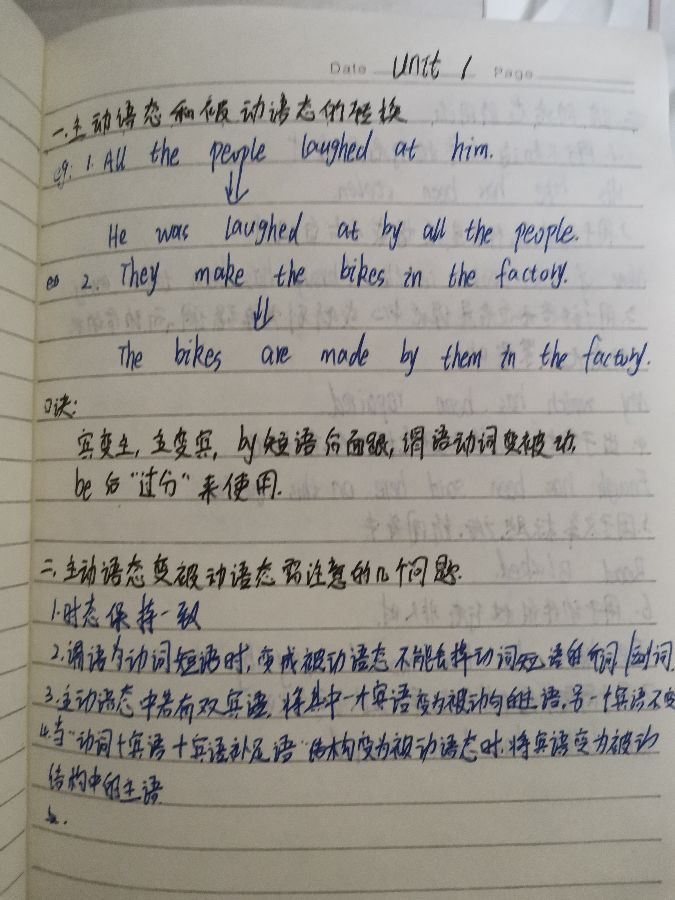 Date Unit 1 Page
一.主动语态和被动语态的转换
eg: 1. All the people laughed at him.
He was laughed at by all the people.
eg 2. They make the bikes in the factory.
The bikes are made by them in the factory.
口诀:
宾变主, 主变宾, by短语后面跟, 谓语动词变被动,
be后“过分”来使用.
二.主动语态变被动语态需注意的几个问题.
1.时态保持一致
2.谓语为动词短语时,变成被动语态不能去掉动词短语的介词/副词
3.主动语态中若有双宾语,将其中一个宾语变为被动句的主语,另一个宾语不变
4.当“动词+宾语+宾语补足语”结构变为被动语态时,将宾语变为被动
结构中的主语